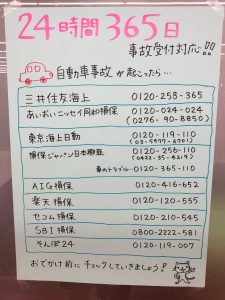 24時間365日
事故受付対応!!
自動車事故が起こったら…
三井住友海上 0120-258-365
あいおいニッセイ同和損保 0120-024-024
(0276-90-8850)
東京海上日動 0120-119-110
(03-5977-6701)
損保ジャパン日本興亜 0120-256-110
(0422-35-4219)
車のトラブル 0120-365-110
AIG損保 0120-416-652
楽天損保 0120-120-555
セコム損保 0120-210-545
SBI損保 0800-2222-581
そんぽ24 0120-119-007
おでかけ前にチェックしていきましょう!